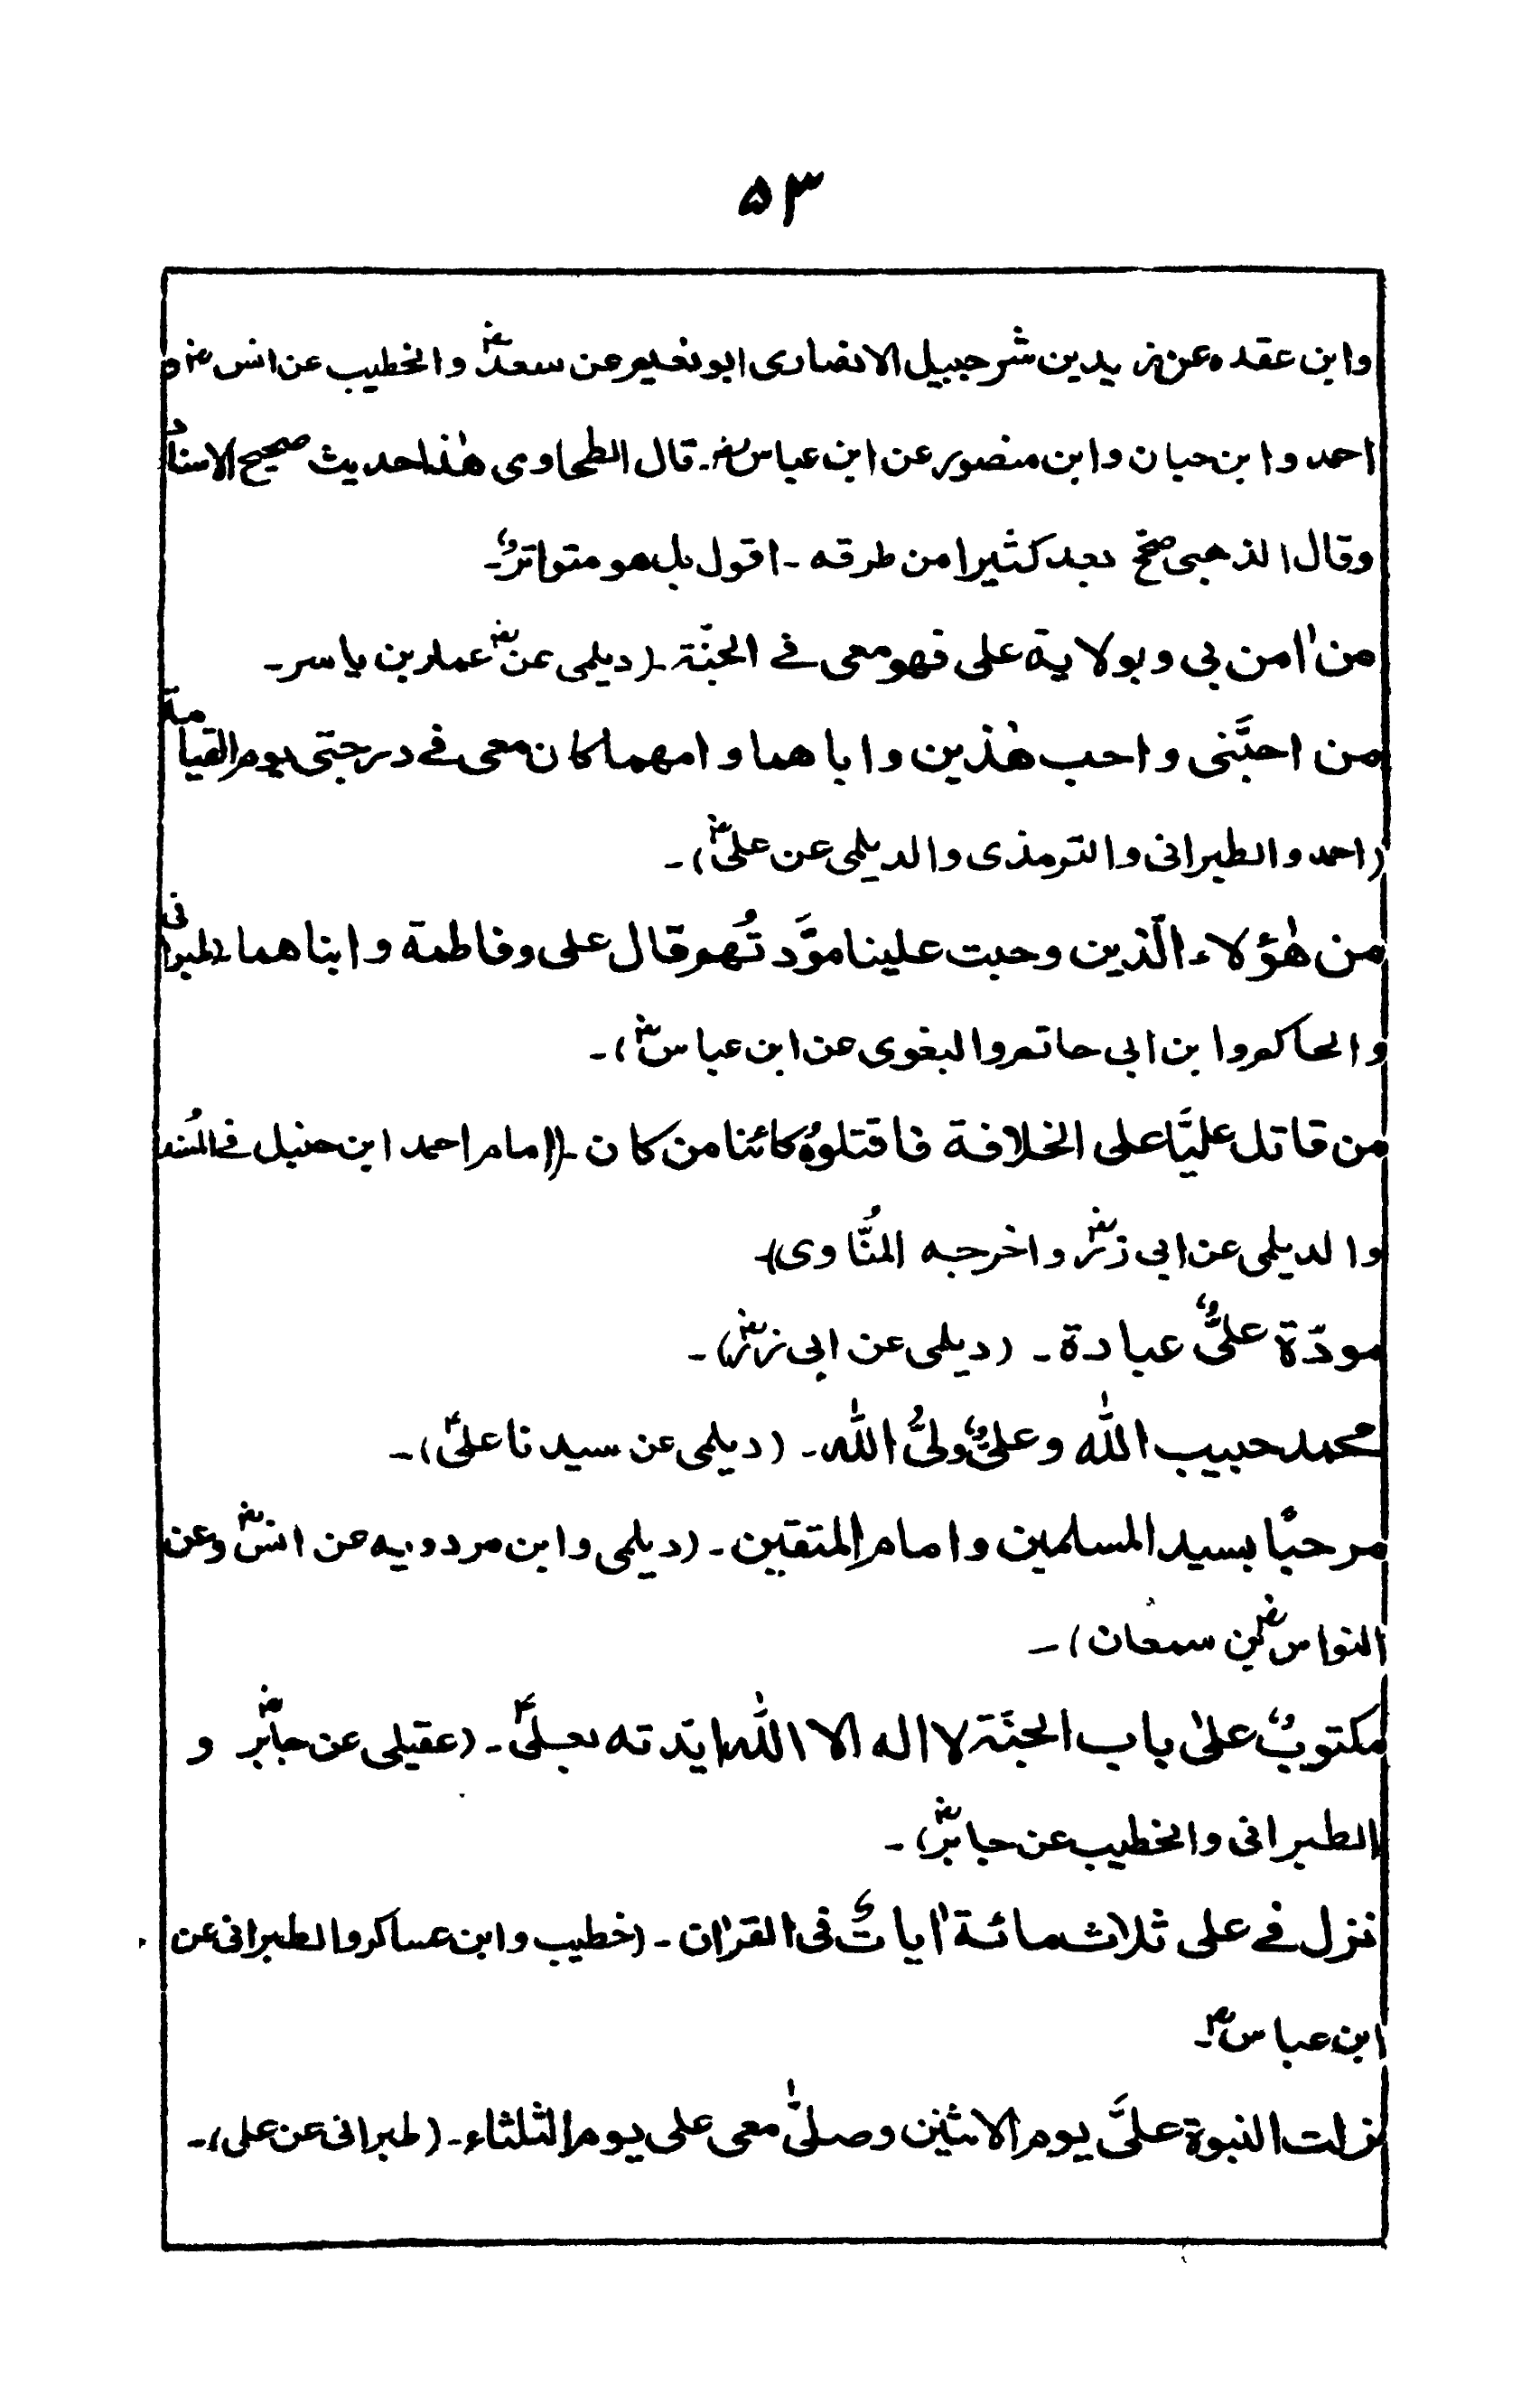 ۵۳
وابن عقده عن زیدبن شرحبیل الانصاری ابو نعیم عن سعدؓ والخطیب عن انسؓ و
احمد وابن حیان وابن منصور عن ابن عباسؓ۔ قال الطحاوی هٰذا حدیث صحیح الاسناد
وقال الذهبی صحّح بعد کثیرا من طرقه ۔ اقول بل هو متواترٌ۔
من اٰمن بی وبولایة علی فهو معی فے الجنّة ۔ (دیلمی عنؓ عمار بن یاسر۔
من احبَّنی واحب هٰذین واباهما وامهما کان معی فے درجتی یوم القیامة
(احمد والطبرانی والترمذی والدیلمی عن علیؓ)۔
من هٰؤلاء الّذین وجبت علینا موَّدتُهم قال علی وفاطمة وابناهما ۔ (طبرانی
والحاکم وابن ابی حاتم والبغوی عن ابن عباسؓ)۔
من قاتل علیًّا علی الخلافة فاقتلوهُ کائنا من کان ۔ (امام احمد ابن حنبل فے المُسند
والدیلمی عن ابی زرؓ واخرجه المُنّاوی)۔
مودّة علیٌّ عبادة ۔ (دیلمی عن ابی زرؓ)۔
محمد حبیب اللّٰه وعلیٌّ ولیُّ اللّٰه۔ (دیلمی عن سیدنا علیؑ)۔
مرحبًا بسید المسلمین وامام المتقین ۔ (دیلمی وابن مردویه عن انسؓ وعن
النواسؓ بن سمعان) ۔
مکتوبٌ علیٰ باب الجنّة لا اله الا اللّٰه ایّدته بعلیؑ ۔ (عقیلی عن جابرؓ و
الطبرانی والخطیب عن جابرؓ)۔
نزل فے علی ثلاث مائة اٰیاتٌ فی القراٰن ۔ (خطیب وابن عساکر والطبرانی عن
ابن عباسؓ۔
نزلت النبوة علیَّ یوم الاثنین وصلیّٰ معی علی یوم الثلثاء ۔ (طبرانی عن علی)۔